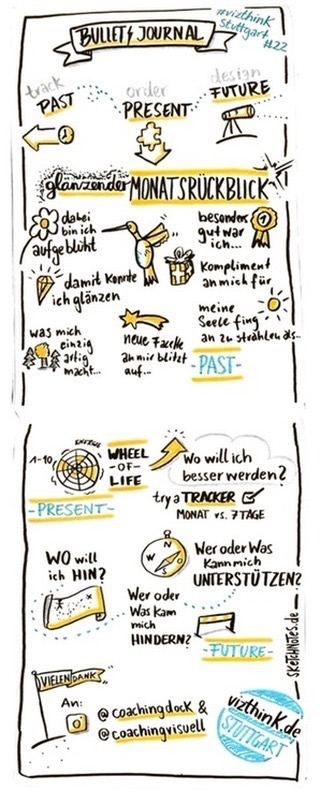 #vizthink
Stuttgart
#22
BULLET JOURNAL
track
PAST
order
PRESENT
design
FUTURE
glänzender MONATSRÜCKBLICK
dabei
bin ich
aufgeblüht
besonders
gut war
ich...
1
damit konnte
ich glänzen
Kompliment
an mich für
meine
Seele fing
an zu strahlen als..
was mich
einzig
artig
macht...
neue Facette
an mir blitzt
auf...
-PAST-
ENERGIE
1-10
WHEEL
-OF-
LIFE
-PRESENT-
Wo will ich
besser werden?
try a TRACKER
MONAT vs. 7 TAGE
WO will
ich HIN?
N
W
S
Wer oder Was
Kann mich
UNTERSTÜTZEN?
Wer oder
Was kann
mich
HINDERN?
-FUTURE-
SKETCHNOTES.de
VIELEN DANK
An:
@coachingdock &
@coachingvisuell
vizthink.de
STUTTGART